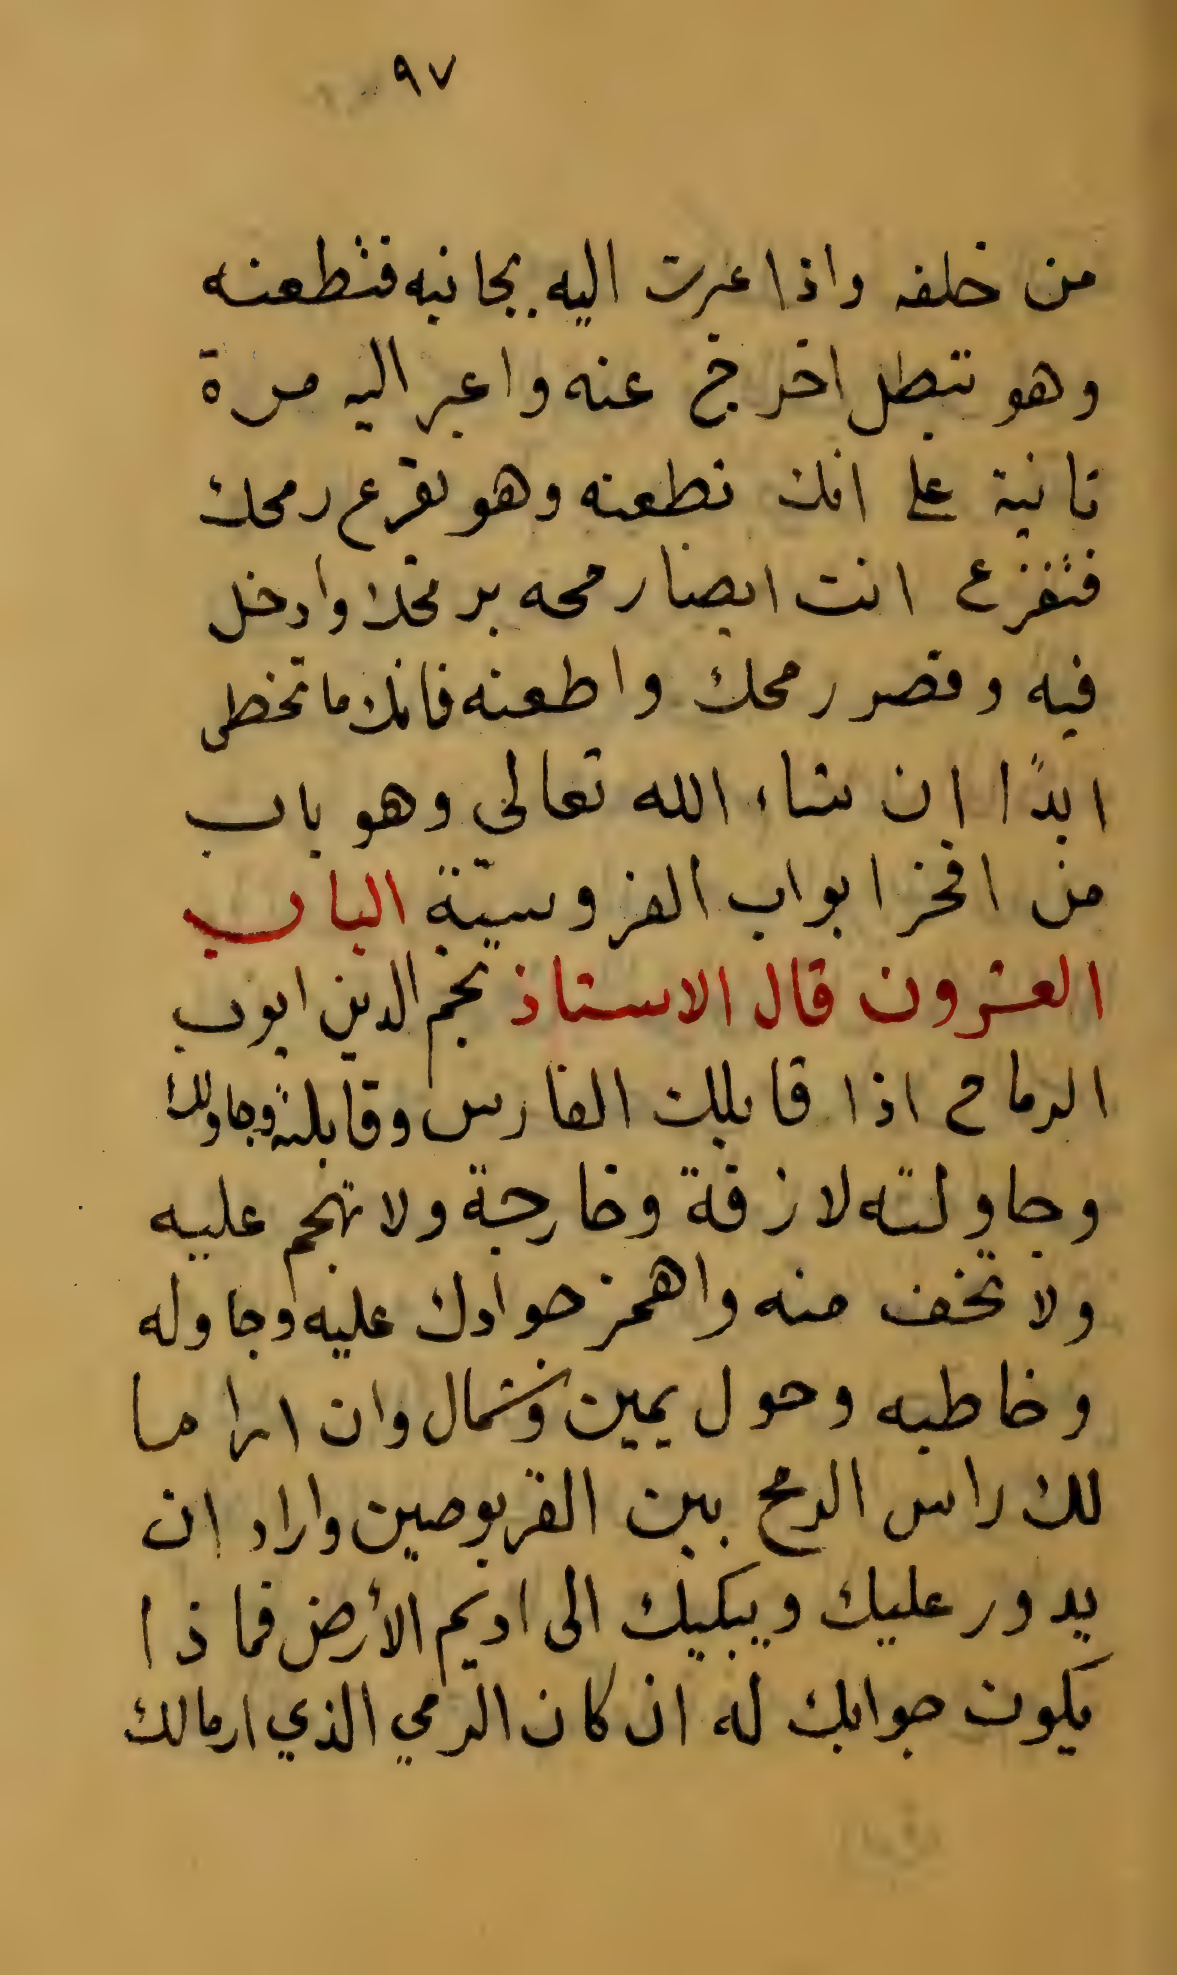 ٩٧
من خلفه واذا عبرت اليه بجانبه فتطعنه
وهو تبطل اخرج عنه واعبر اليه مرة
تانية على انك تطعنه وهو يقرع رمحك
فتقرع انت ايضا رمحه برمحك وادخل
فيه وقصر رمحك واطعنه فانك ما تخطى
ابدًا ان شاء الله تعالى وهو باب
من افخر ابواب الفروسيّة الباب
العشرون قال الاستاذ نجم الدين ايوب
الرماح اذا قابلك الفارس وقابلته وجاولك
وجاولته لازقة وخارجة ولا تهجم عليه
ولا تخف منه واهمز جوادك عليه وجاوله
وخاطبه وحول يمين وشمال وان ارما
لك راس الرمح بين القربوصين واراد ان
يدور عليك ويبكيك الى اديم الأرض فماذا
يكون جوابك له ان كان الرمي الذي ارمالك